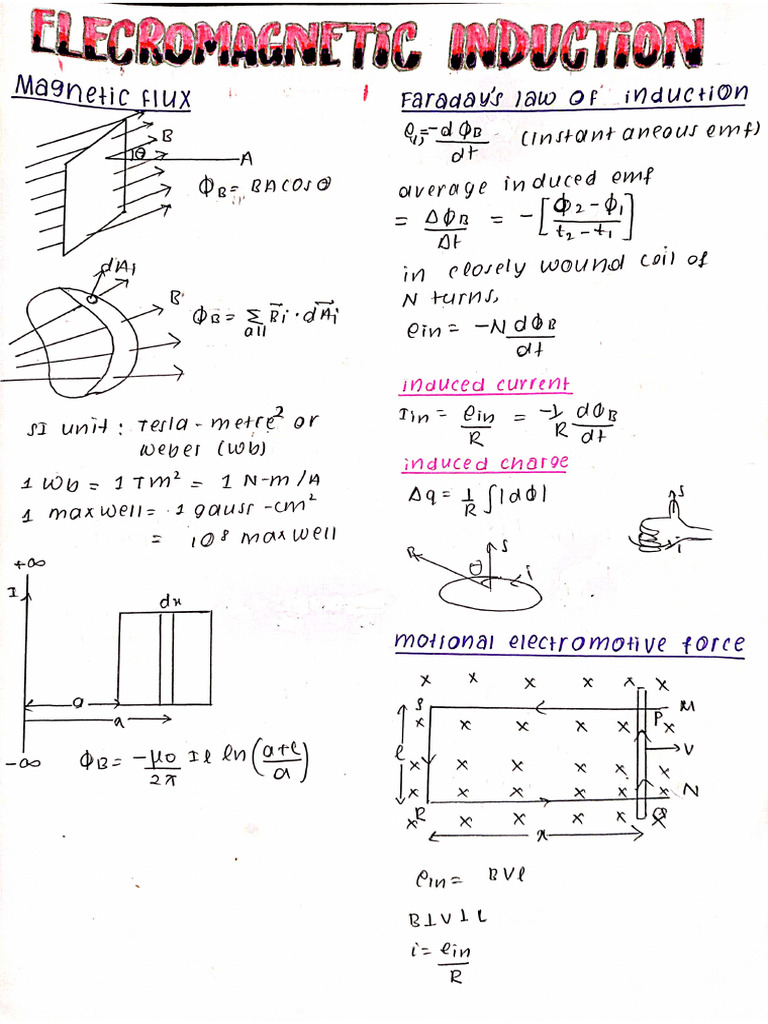 ELECROMAGNETIC INDUCTION
Magnetic flux
B
θ
A
ΦB = BA cos θ
dAi
B
ΦB = Σ B⃗i · dA⃗i
all
SI unit : Tesla - metre² or
weber (wb)
1 Wb = 1 Tm² = 1 N-m/A
1 maxwell = 1 gauss - cm²
= 10⁸ maxwell
+∞
I
dx
a
a
-∞
ΦB = -μ0/2π Il ln(a+l/a)
1
Faraday's law of induction
= -dΦB/dt (instantaneous emf)
average induced emf
= ΔΦB/Δt = -[Φ2-Φ1/t2-t1]
in closely wound coil of
N turns,
ein = -N dΦB/dt
induced current
Iin = ein/R = -1/R dΦB/dt
induced charge
Δq = 1/R ∫|dΦ|
S
i
B
S
θ
i
motional electromotive force
x x x x x x
S M
x x x x P x
l
v
x x x x x x
x x x x x N x
R Q
x x x x x x
x
ein = Bvl
B⊥v⊥l
i = ein/R